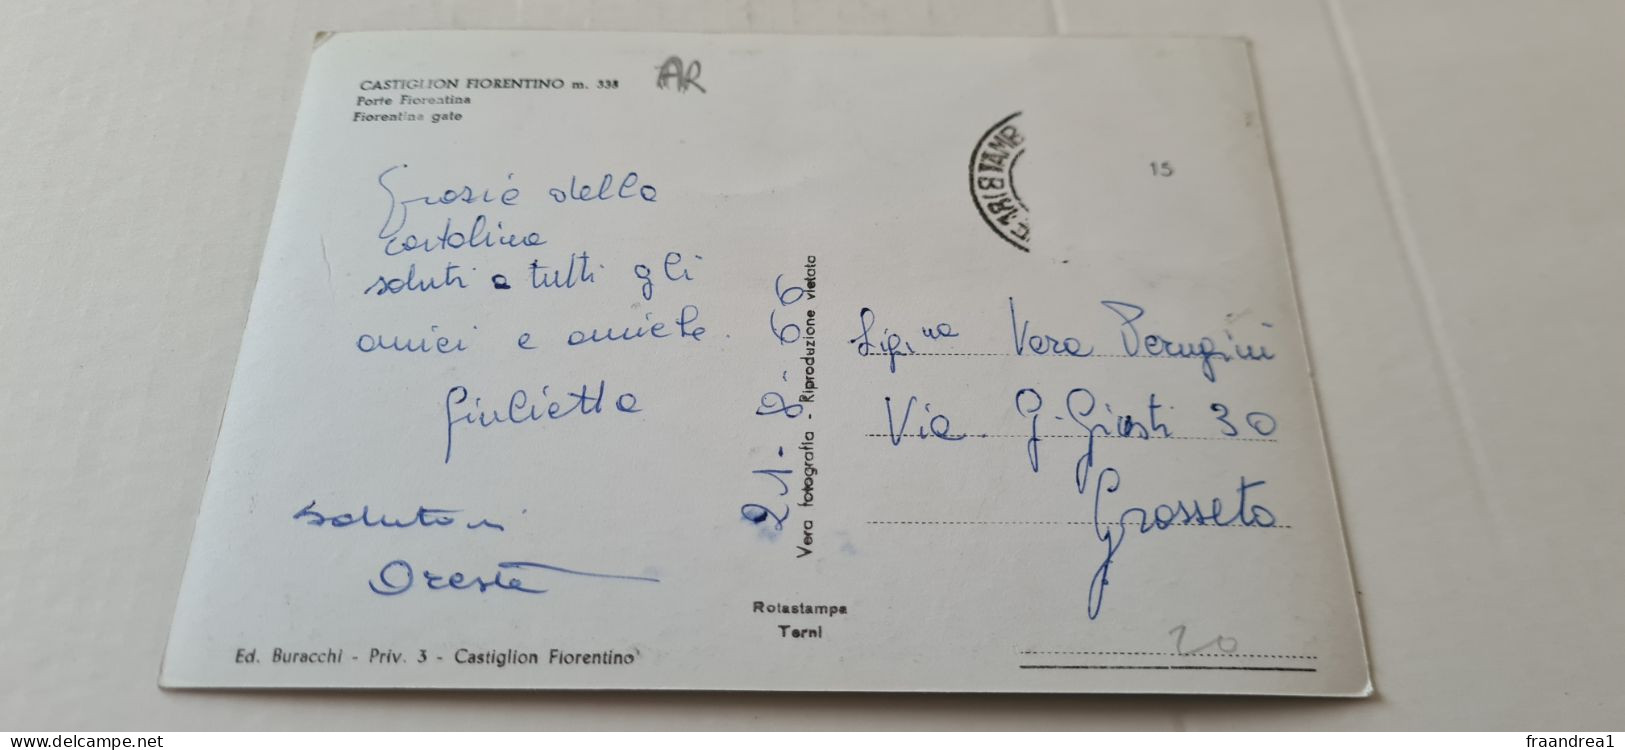 CASTIGLION FIORENTINO m. 338
Porte Fiorentina
Fiorentina gate
AR
Grasie della
cartolina
saluti a tutti gli
amici e amiche.
Giulietta
Saluton
Oreste
Ed. Buracchi - Priv. 3 - Castiglion Fiorentino
21-8-66
Vera fotografia - Riproduzione vietata
Rotastampa
Terni
15
Sig.na Vera Perugini
Via G. Giusti 30
Grosseto
20
delcampe.net
fraandrea1